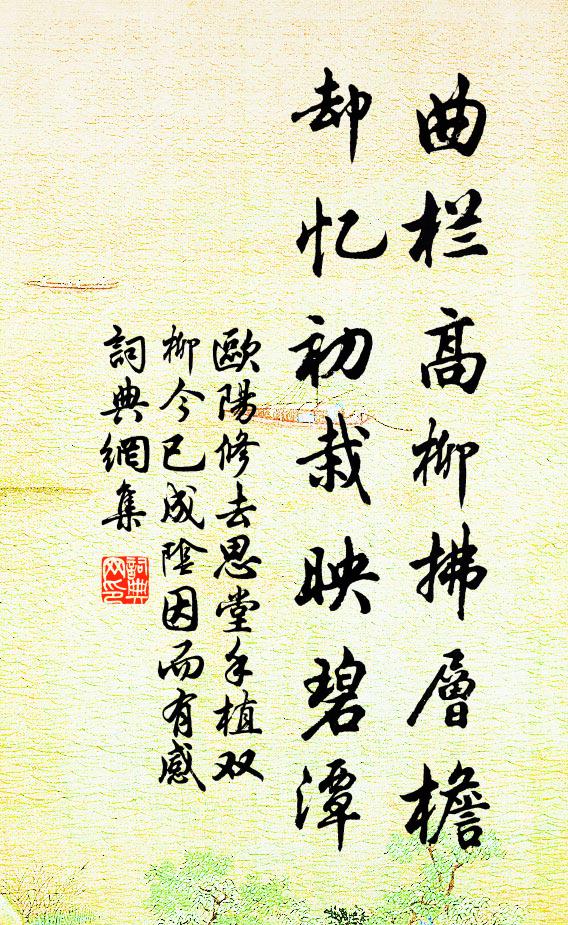 曲栏高柳拂層檐
却忆初栽映碧潭
歐陽修去思堂手植双
柳今已成陰因而有感
詞典網集
詞典网印